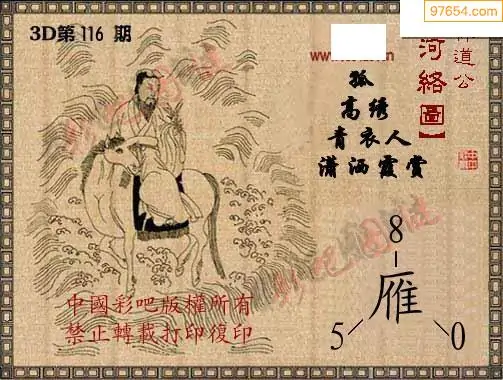 3D第 116 期
97654.com
道公
河絡圖】
孤
高绣
青衣人
潇洒霞赏
8
雁
5
0
中國彩吧版權所有
禁止轉載打印復印